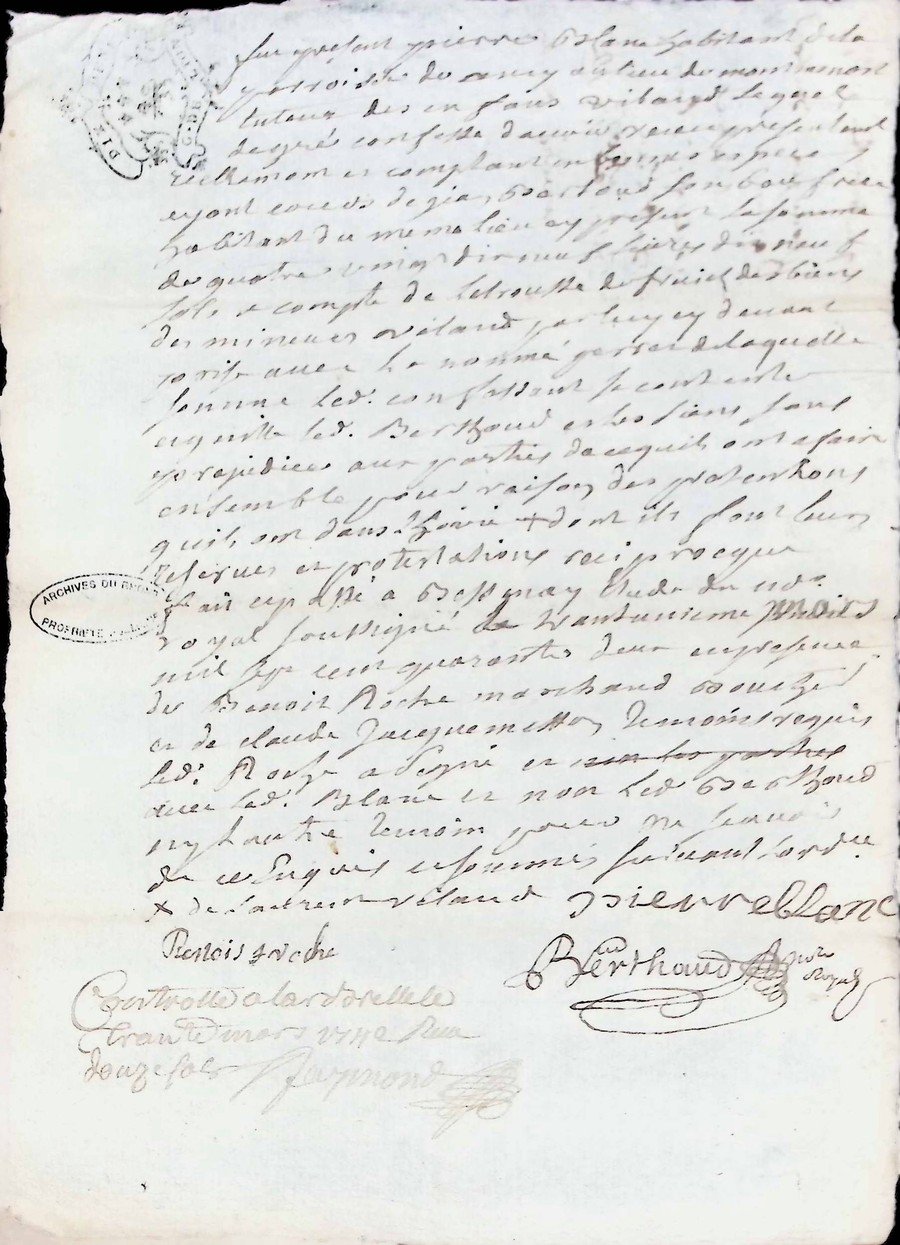 fut present pierre Blanc habitant de la
parroisse de au lieu de
tuteur des enfans vilaud lequel
de gré confesse d'avoir receu présentement
reellement et comptant en bonnes especes
ayant cours de Berthoud son beau frere
habitant du meme lieu cy present la somme
de quatre vingt dix neuf livres dix neuf
sols a compte de de fruict des biens
des mineurs vilaud par luy cy devant
prise avec le nommé de laquelle
somme led. confessant se contente
et quitte led. Berthoud et les siens sans
prejudice aux parties de ce quils ont a faire
ensemble pour raison des pretentions
quils ont dans + dont ils font leurs
reserves et protestations reciprocque
fait et passé a Bessenay etude du no.re
royal soussigné le mars
mil sept cent quarante deux en presence
de Benoit Roche marchand
et de claude Jacquemetton temoins requis
led. Roche a signé et non les parties
avec led. Blanc et non led Berthoud
ny l'autre temoin pour ne scavoir
de ce Enquis et sommés suivant l'ordce
x de vilaud pierre blanc
Benois roche
Berthaud no.re Royal
Controllé a larbrelle le
trante mars 1742 Receu
douze sols Raymond
ARCHIVES DU RHONE
PROPRIETE PUBLIQUE